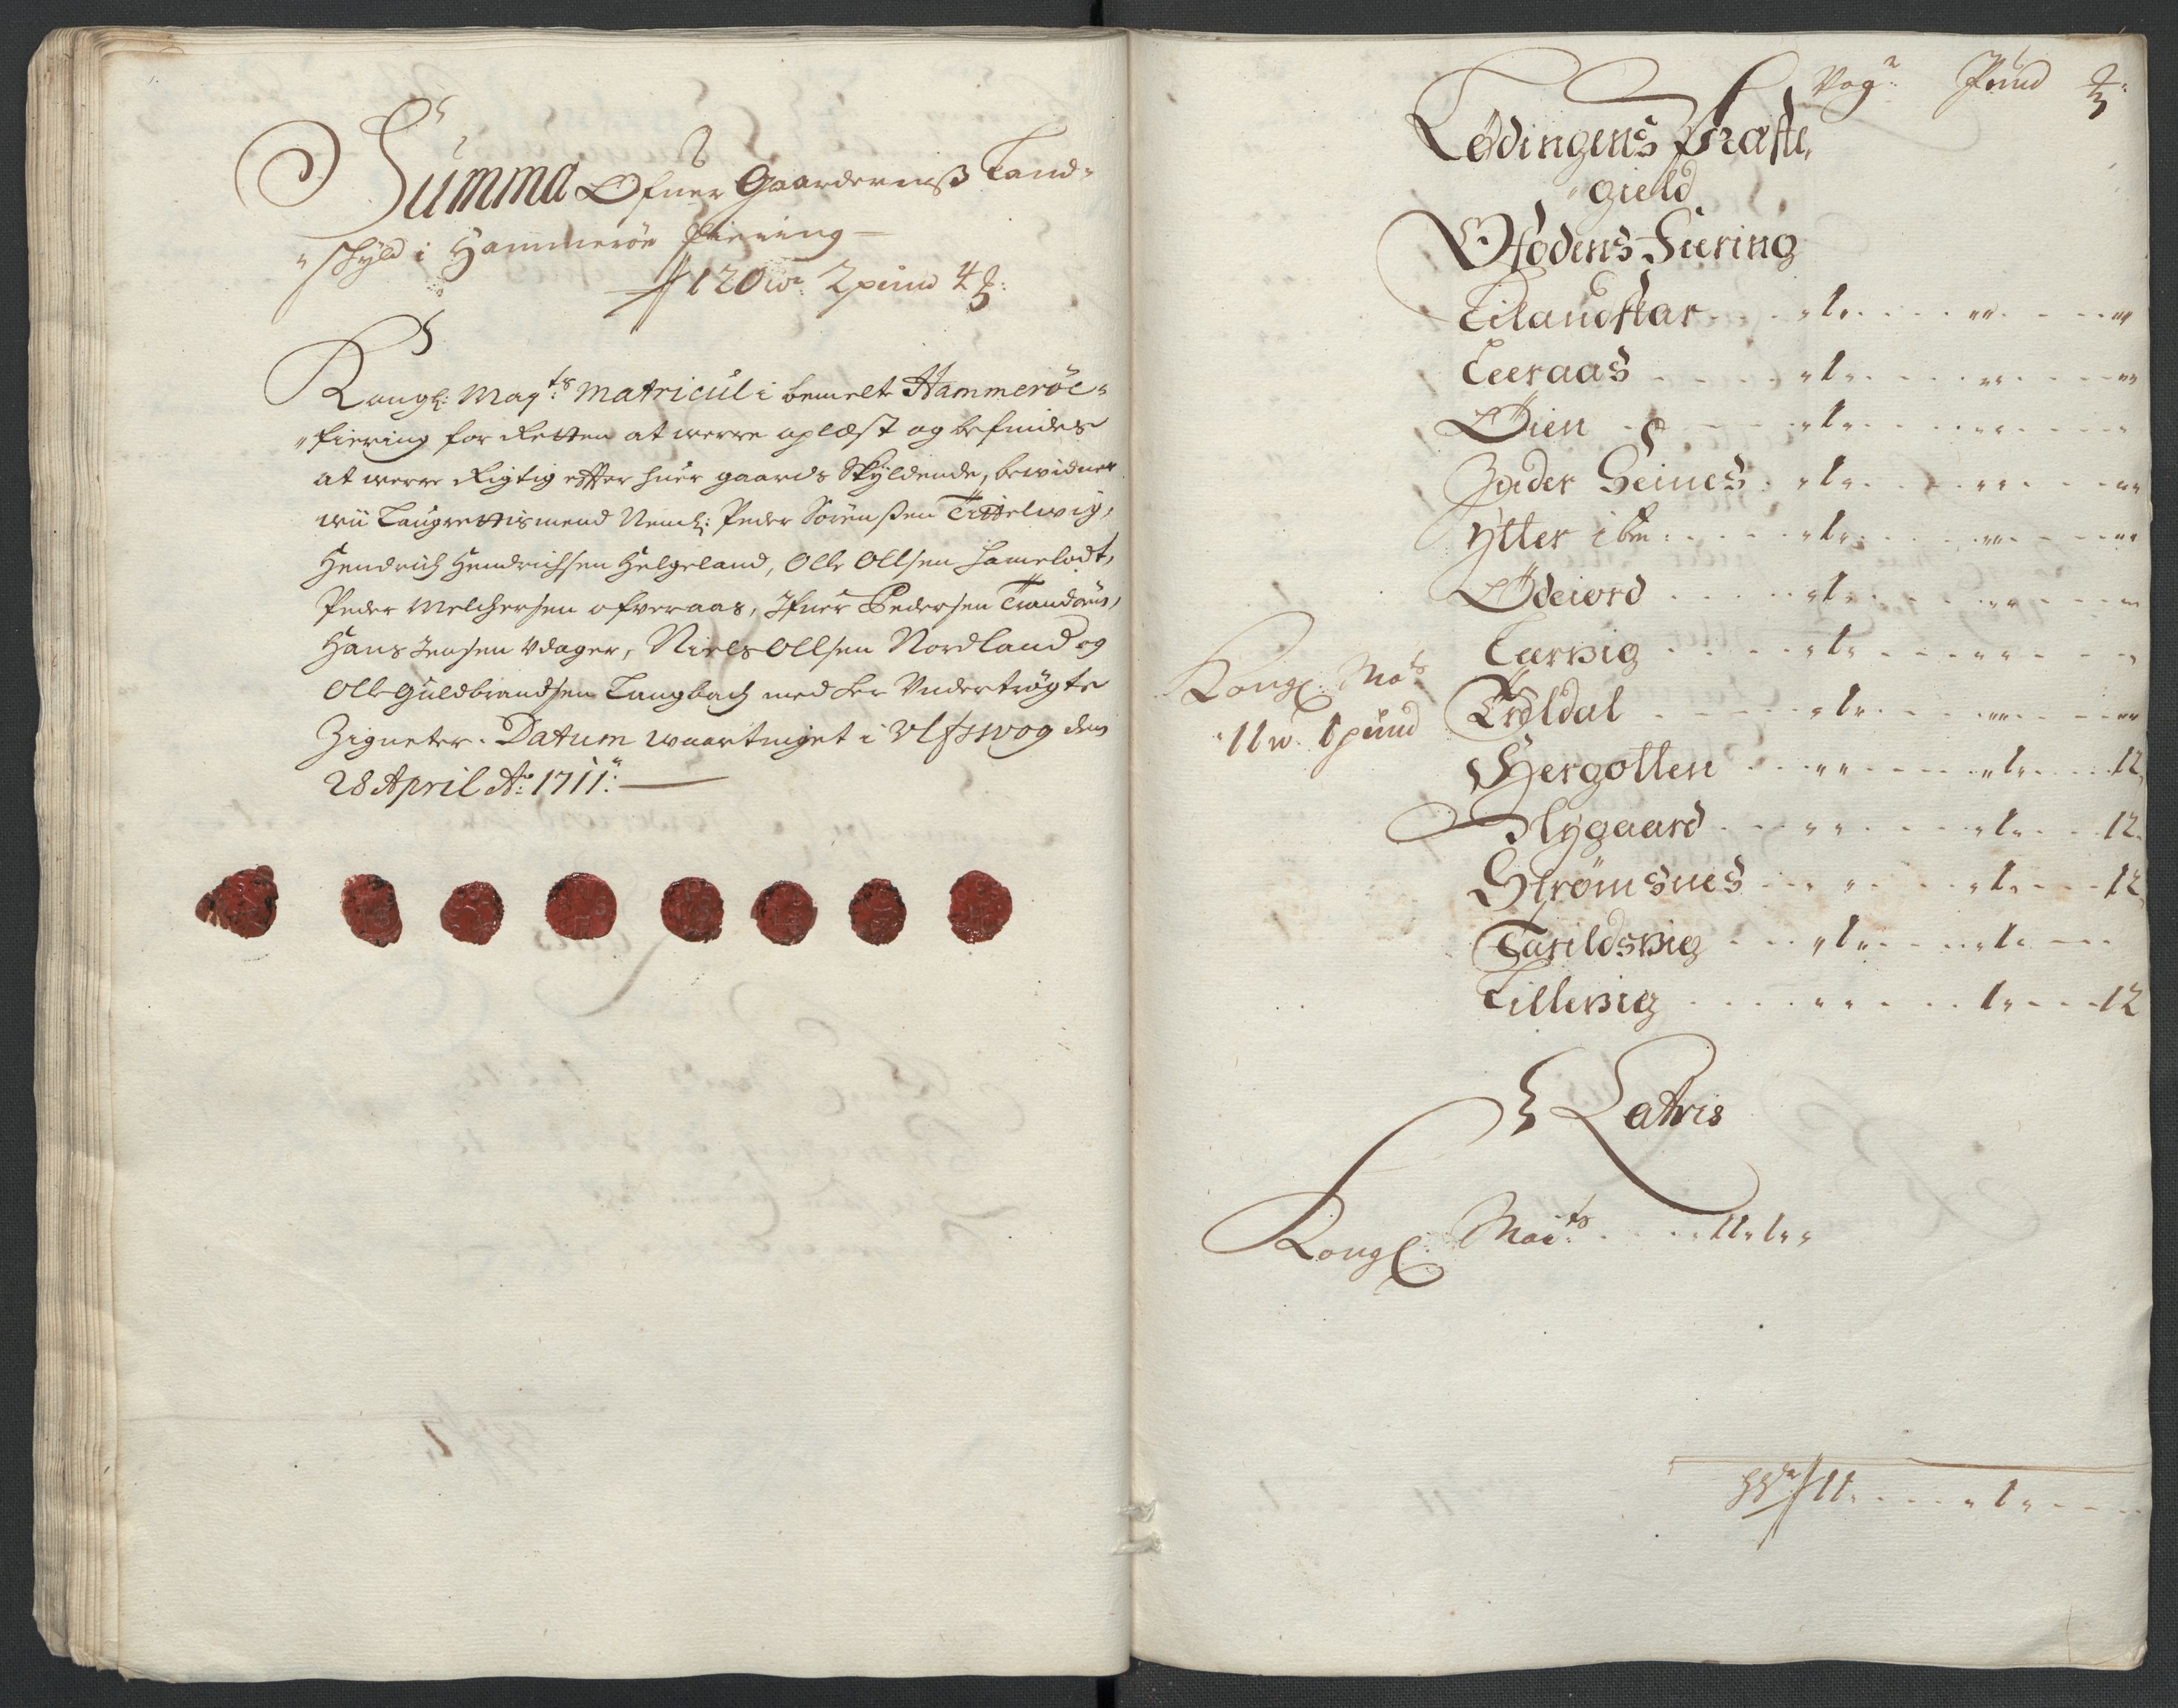 Summa Ofuer Gaardernis Land-
"schÿld i Hammerøe fiering
120 w: 2 pund 4 ℔:
Kongl: May:ts Matricul i bemelte Hammerøe-
"fiering for Retten at werre oplæst og befindes
at werre Rigtig effter huer gaards Skÿldende, bewidner
wii Laugrettismend Neml: Peder Sørensen Tittelwig,
Hendrich Hendrichsen Helgeland, Olle Ollsen hamelodt,
Peder Melchersen ofveraas, Ifuer Pedersen Trandøen,
Hans Jensen Vdager, Niels Ollsen Nordland og
Olle Guldbrandsen Langbach med der Vndertrøgte
Zigneter. Datum waartinget i Ulfswog den
28 April A:o 1711:
Vog: Pund ℔:
Lødingens Præste,
"gield
Offodens Fiering
Lilandskar - - - 1 - - - " - - - "
Leeraas - - - 1 - - - " - - - "
Øien - - - 1 - - - " - - - "
Inder Seines - 1 - - - " - - - "
Ytter ibm: - - - 1 - - - " - - - "
Ødeiord - - - 1 - - - " - - - "
Taarvig - - - 1 - - - " - - - "
Kongl: Ma:ts
11 w. 1 pund
Trøldal - - - 1 - - - " - - - "
Hergotten - - - " - - - 1 - - - 12
Nygaard - - - " - - - 1 - - - 12
Strømsnes - - - " - - - 1 - - - 12
Tarildsvig - - - 1 - - - 1 - - -
Lillevig - - - " - - - 1 - - - 12
Latris
Kongl: Mai:ts - - - 11 " 1 "
11 - - - 1 - - -